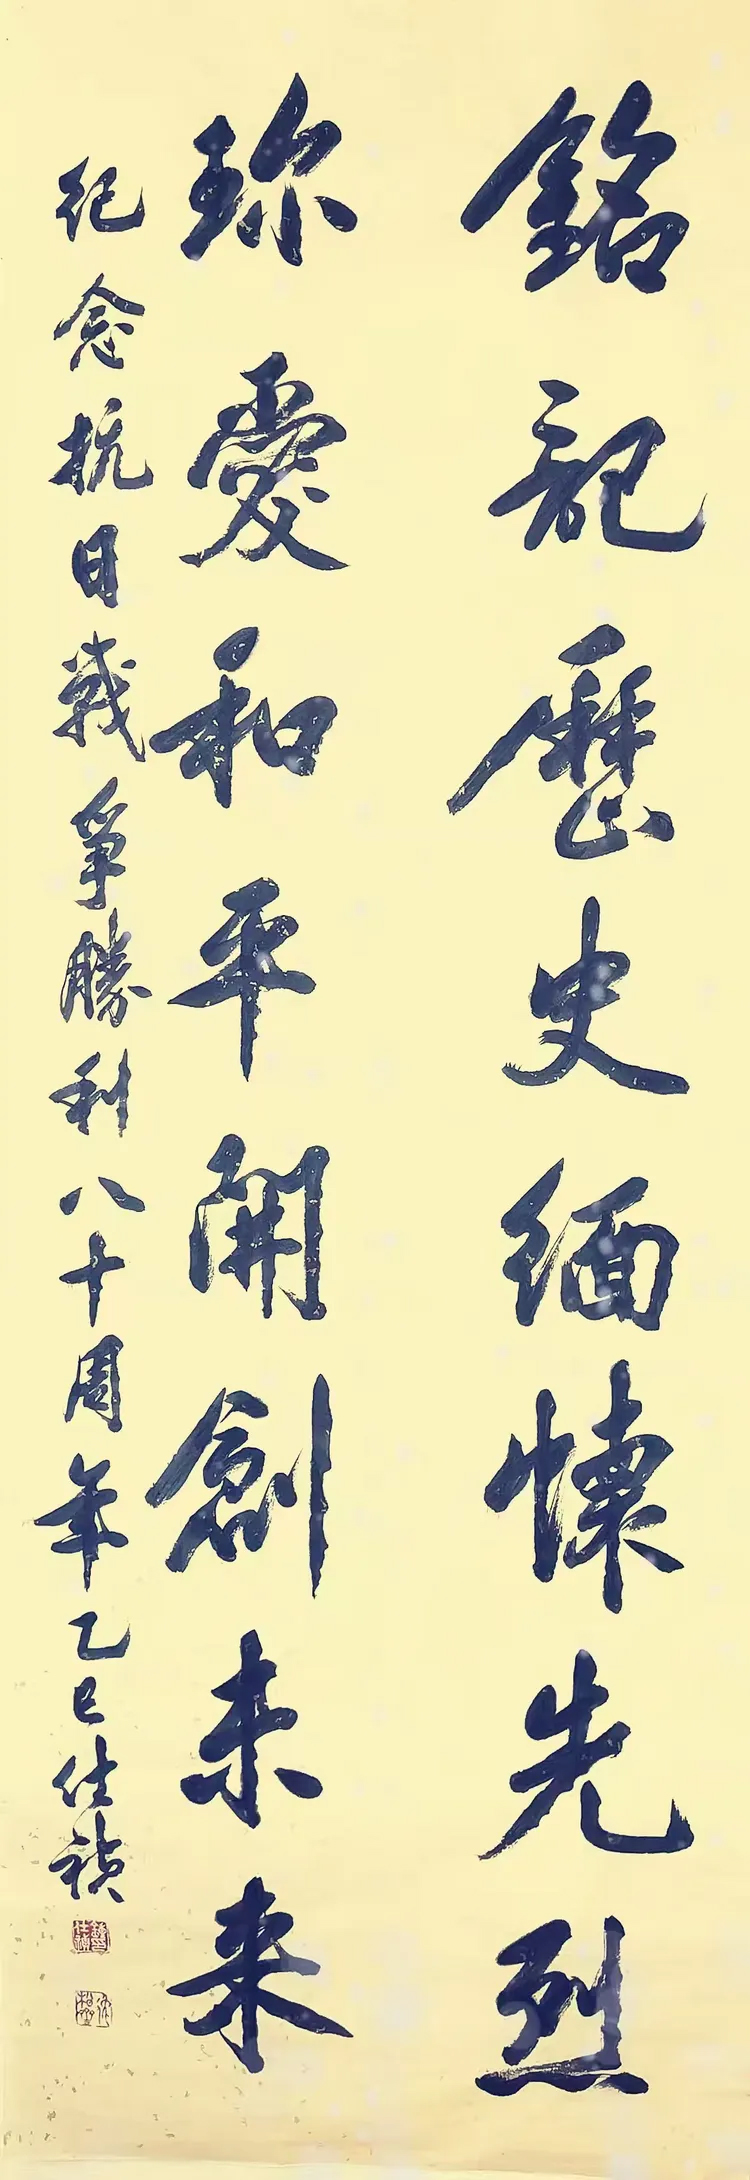 銘記歷史緬懷先烈
珍愛和平開創未来
纪念抗日戰爭勝利八十周年乙巳仕禎